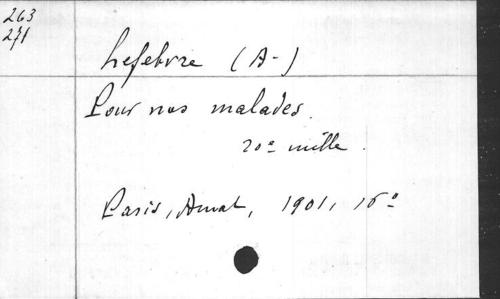 263
271
Lefebvre (A-)
Pour nos malades.
20e mille.
Paris, Amat, 1901, 16°